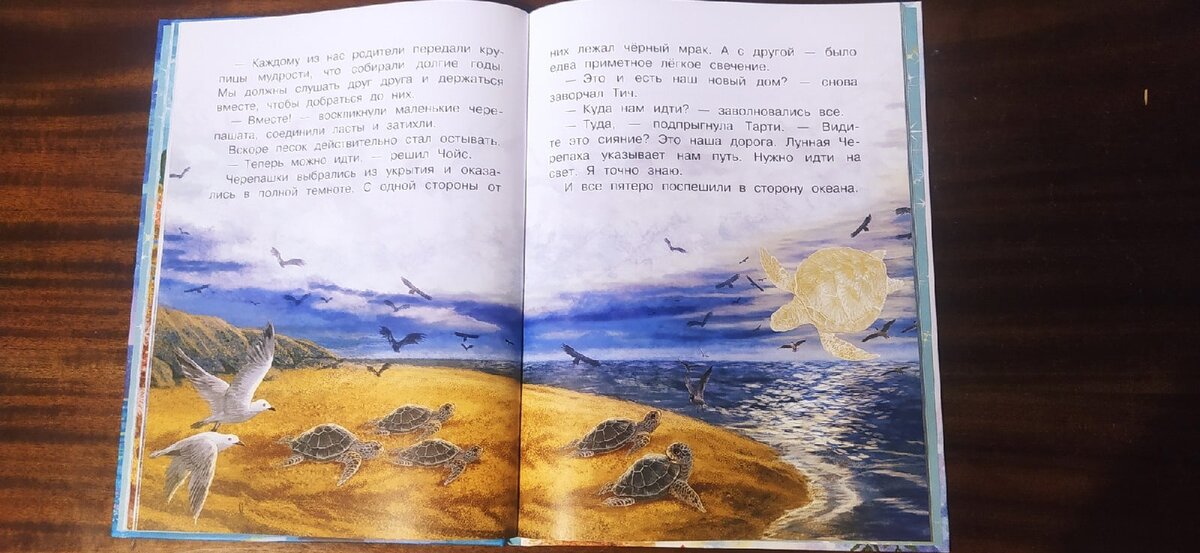 — Каждому из нас родители передали кру-
пицы мудрости, что собирали долгие годы.
Мы должны слушать друг друга и держаться
вместе, чтобы добраться до них.
— Вместе! — воскликнули маленькие чере-
пашата, соединили ласты и затихли.
Вскоре песок действительно стал остывать.
— Теперь можно идти, — решил Чойс.
Черепашки выбрались из укрытия и оказа-
лись в полной темноте. С одной стороны от
них лежал чёрный мрак. А с другой — было
едва приметное лёгкое свечение.
— Это и есть наш новый дом? — снова
заворчал Тич.
— Куда нам идти? — заволновались все.
— Туда, — подпрыгнула Тарти. — Види-
те это сияние? Это наша дорога. Лунная Че-
репаха указывает нам путь. Нужно идти на
свет. Я точно знаю.
И все пятеро поспешили в сторону океана.